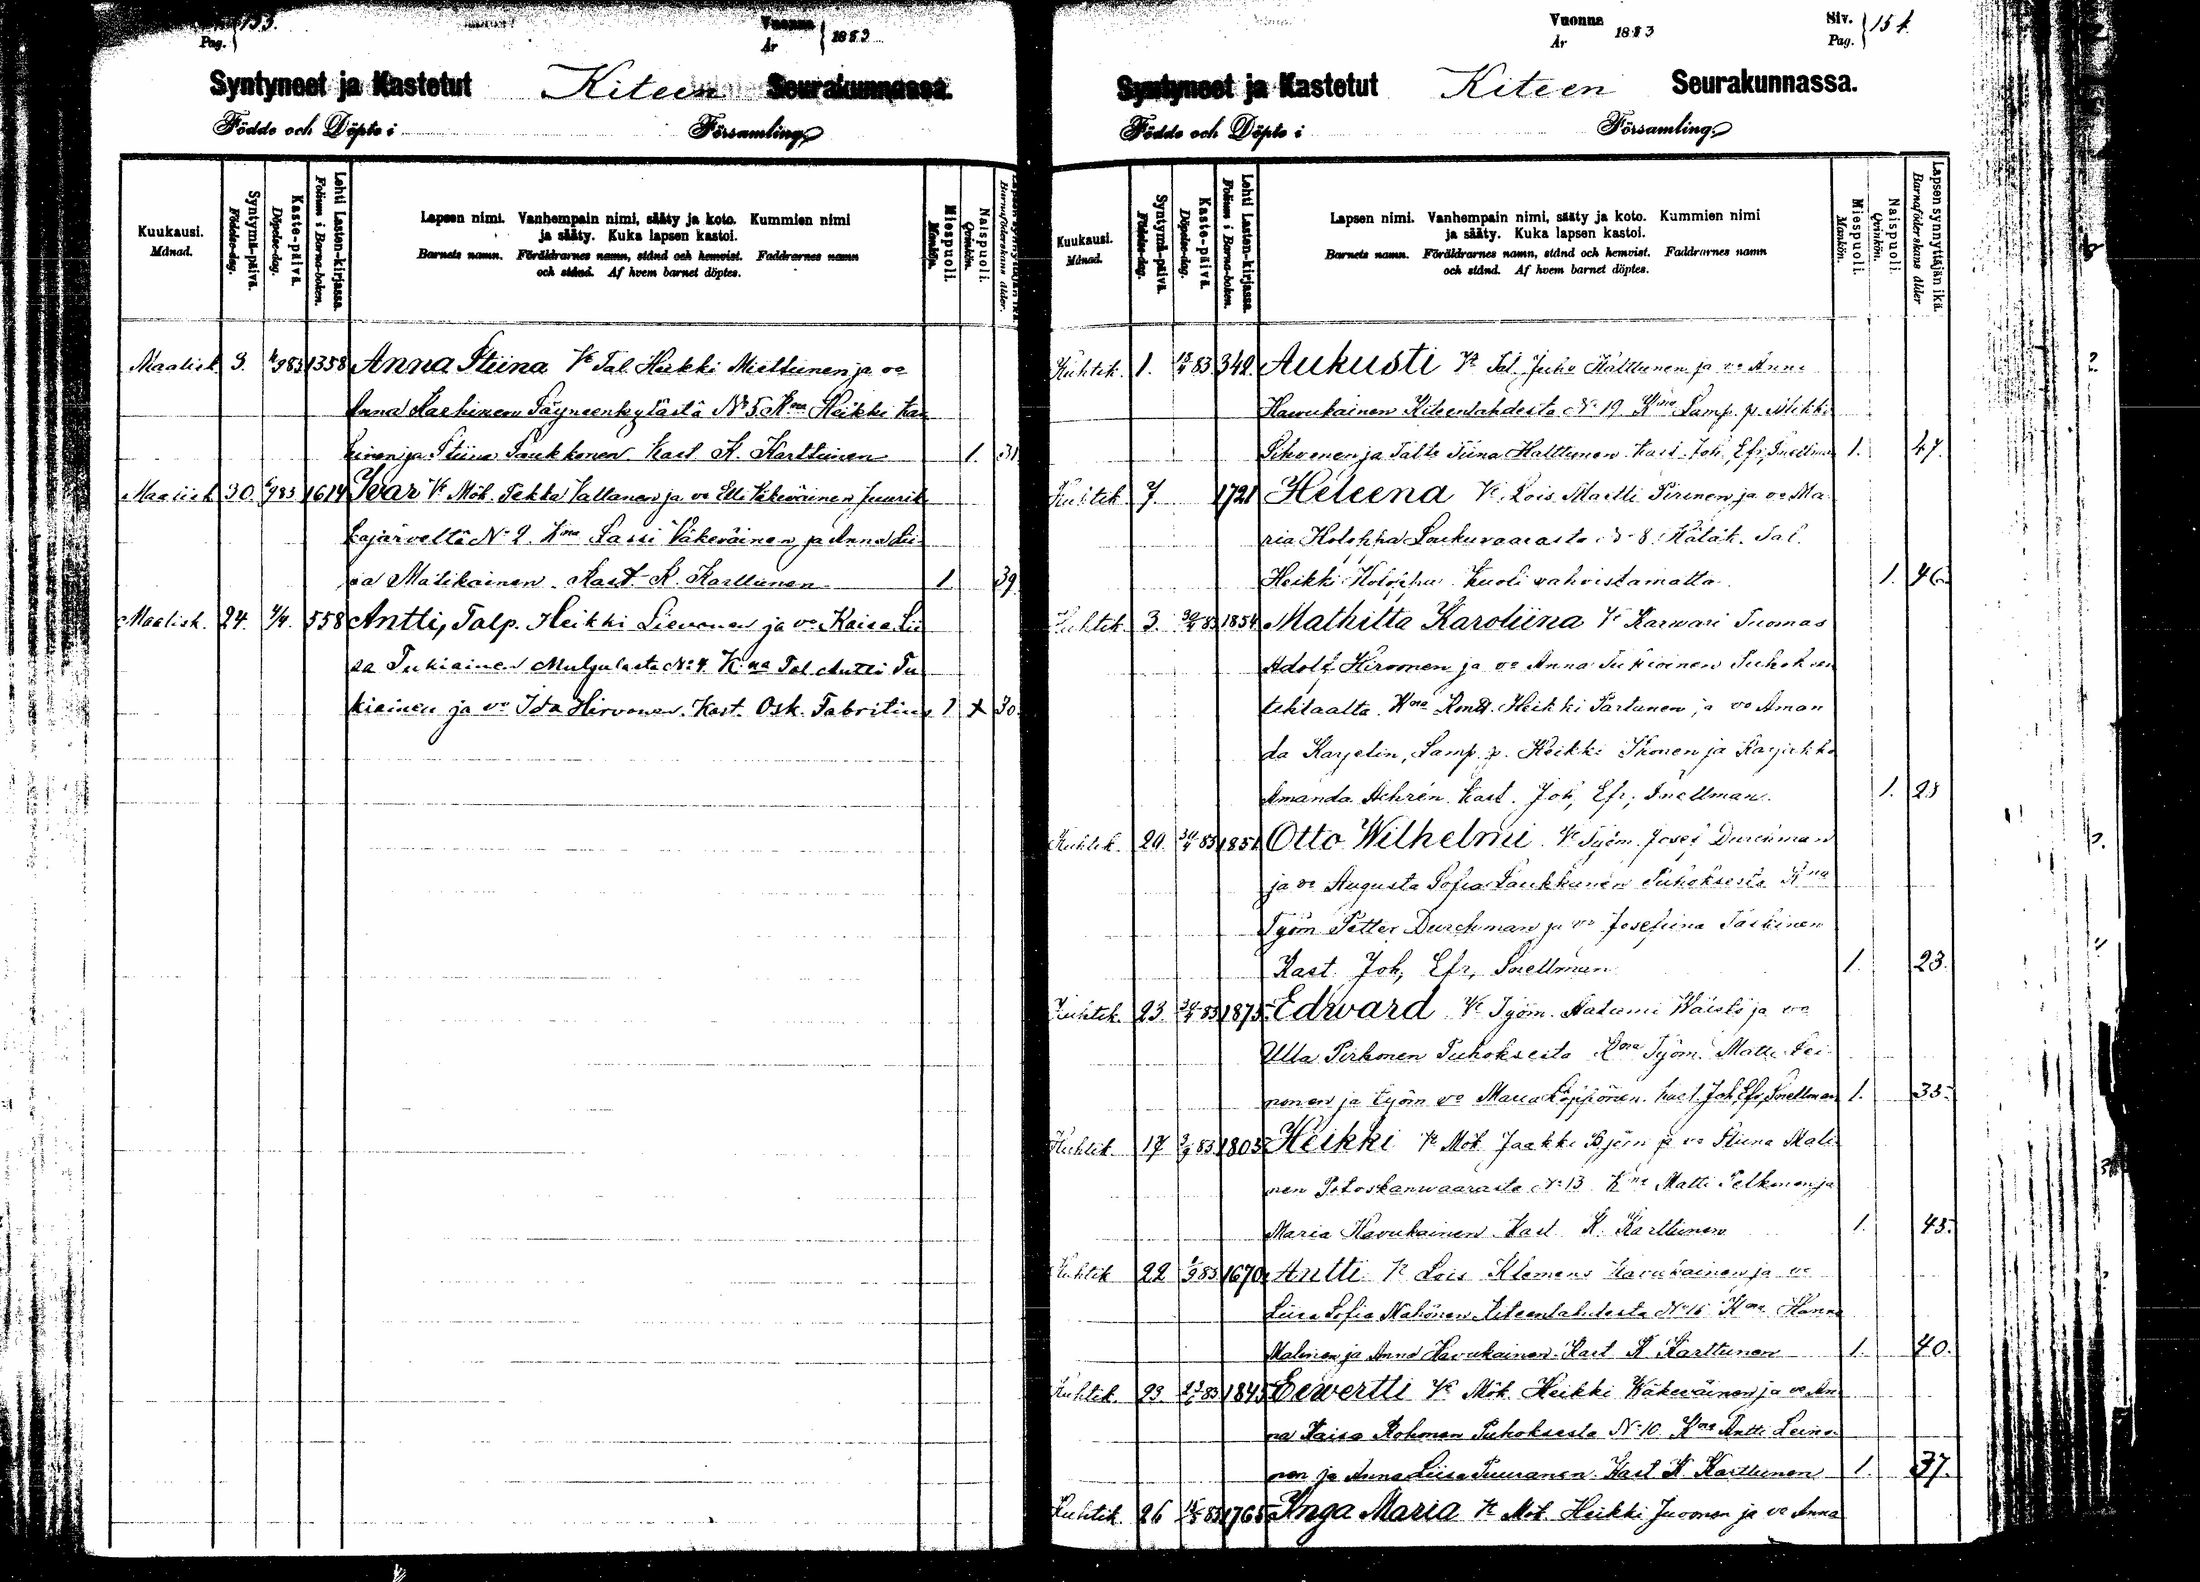 153.
Pag.
Vuonna
År
1883
Syntyneet ja Kastetut Kiteen Seurakunnassa.
Födde och Döpte i Församling
Kuukausi.
Månad.
Syntymä-päivä.
Födelse-dag.
Kaste-päivä.
Döpelse-dag.
Lehti Lasten-kirjassa.
Folium i Barna-boken.
Lapsen nimi. Vanhempain nimi, sääty ja koto. Kummien nimi
ja sääty. Kuka lapsen kastoi.
Barnets namn. Föräldrarnes namn, stånd och hemvist. Faddrarnes namn
och stånd. Af hvem barnet döptes.
Miespuoli.
Mankön.
Naispuoli.
Qvinkön.
Barnaföderskans ålder.
Maalisk. 9. 1358 Anna Stiina Vt Tal. Heikki Miettinen ja vo
Anna Kaskinen Päyneenkylästä No 5 Kna Heikki Kas
kinen ja Stiina Laukkanen Kast K. Karttunen 1. 31
Maalisk 30. 1614 Ivar Vt Mök. Pekka Vattanen ja vo Elli Väkeväinen Juurik
kajärveltä No 2. Kna Lassi Väkeväinen ja Anna Lii
sa Matikainen. Kast K. Karttunen 1 39
Maalisk. 24. 4/4. 558 Antti, Talp. Heikki Lievonen ja vo Kaisa Lii
sa Tukiainen Muljulasta No 4. Kna Tal. Antti Tu
kiainen ja vo Ida Hirvonen. Kast. Osk. Fabritius 1 30.
Vuonna
År
1883
Siv.
Pag.
154
Syntyneet ja Kastetut Kiteen Seurakunnassa.
Födde och Döpte i Församling
Kuukausi.
Månad.
Syntymä-päivä.
Födelse-dag.
Kaste-päivä.
Döpelse-dag.
Lehti Lasten-kirjassa.
Folium i Barna-boken.
Lapsen nimi. Vanhempain nimi, sääty ja koto. Kummien nimi
ja sääty. Kuka lapsen kastoi.
Barnets namn. Föräldrarnes namn, stånd och hemvist. Faddrarnes namn
och stånd. Af hvem barnet döptes.
Miespuoli.
Mankön.
Naispuoli.
Qvinkön.
Lapsen synnyttäjän ikä.
Barnaföderskans ålder
Huhtik. 1. 342. Aukusti Vt Tal. Juho Halttunen ja vo Anna
Havukainen Kiteenlahdesta No 19 Kna Lamp. p. Mikko
Sihvonen ja Talt. Tiina Halttunen Kast. Joh, Efr, Snellman 1. 47.
Huhtik 7. 1721 Heleena Vt Lois Martti Pirinen ja vo Ma
ria Holopha Loukuvaarasta No 8. Hätäk. Tal.
Heikki Holopha Kuoli vahvistamatta. 1. 46
Huhtik 3. 1854 Mathilta Karoliina Vt Karvari Tuomas
Adolf Hirvonen ja vo Anna Tukiainen Puhoksen
tehtaalta. Kna Heikki Partanen ja vo Aman
da Karjelin, Lamp. p. Heikki Ikonen ja Karjakko
Amanda Kast. Joh, Efr, Snellman. 1. 28
Huhtik. 20. 1851 Otto Wilhelmi Vt Työm. Josef Durchman
ja vo Augusta Sofia Laukkanen Puhoksesta Kna
Työm Petter Durchman ja vo Josefiina Taskinen
Kast. Joh, Efr, Snellman 1. 23.
Huhtik. 23. 1875. Edvard Vt Työm. Aatami Wäistö ja vo
Ulla Pirhonen Puhoksesta Kna Työm. Matti Lei
nonen ja työm vo Maria Löppönen. kast. Joh, Efr, Snellman 1. 35.
Huhtik. 17 1803 Heikki Vt Mök Jaakko Björn ja vo Stiina Mali
nen Potoskanvaarasta No 13 Kna Matti Pelkonen ja
Maria Havukainen Kast K. Karttunen 1. 43.
Huhtik 22 1670 Antti Vt Lois Klemens Havukainen ja vo
Liisa Sofia Nahönen Kiteenlahdesta No 16 Kna Hanna
Malinen ja Anna Havukainen. Kast K Karttunen 1. 40.
Huhtik. 23. 1845 Eewertti Vt Mök Heikki Wäkewäinen ja vo An
na Kaisa Rohonen Puhoksesta No 10 Kna Antti Leino
nen ja Anna Liisa Puuranen. Kast K Karttunen 1. 37.
Huhtik. 26 1765 Inga Maria Vt Mök Heikki Juvonen ja vo Anna